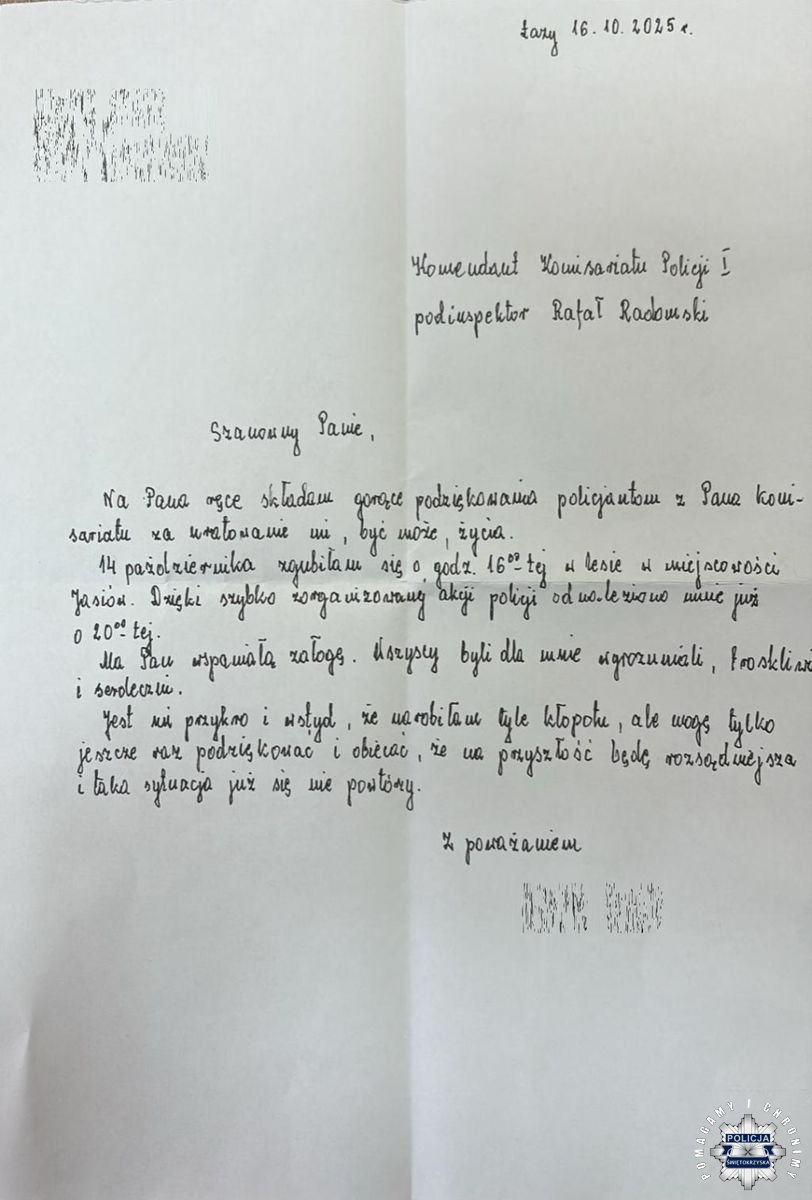 Łazy 16.10.2025 r.
Komendant Komisariatu Policji I
podinspektor Rafał Radomski
Szanowny Panie,
Na Pana ręce składam gorące podziękowania policjantom z Pana komi-
sariatu za uratowanie mi, być może, życia.
14 października zgubiłam się o godz. 16⁰⁰-tej w lesie w miejscowości
Jasiów. Dzięki szybko zorganizowanej akcji policji odnaleziono mnie już
o 20⁰⁰-tej.
Ma Pan wspaniałą załogę. Wszyscy byli dla mnie wyrozumiali, troskliwi
i serdeczni.
Jest mi przykro i wstyd, że narobiłam tyle kłopotu, ale mogę tylko
jeszcze raz podziękować i obiecać, że na przyszłość będę rozsądniejsza
i taka sytuacja już się nie powtórzy.
Z poważaniem
POMAGAMY I CHRONIMY
POLICJA
ŚWIĘTOKRZYSKA